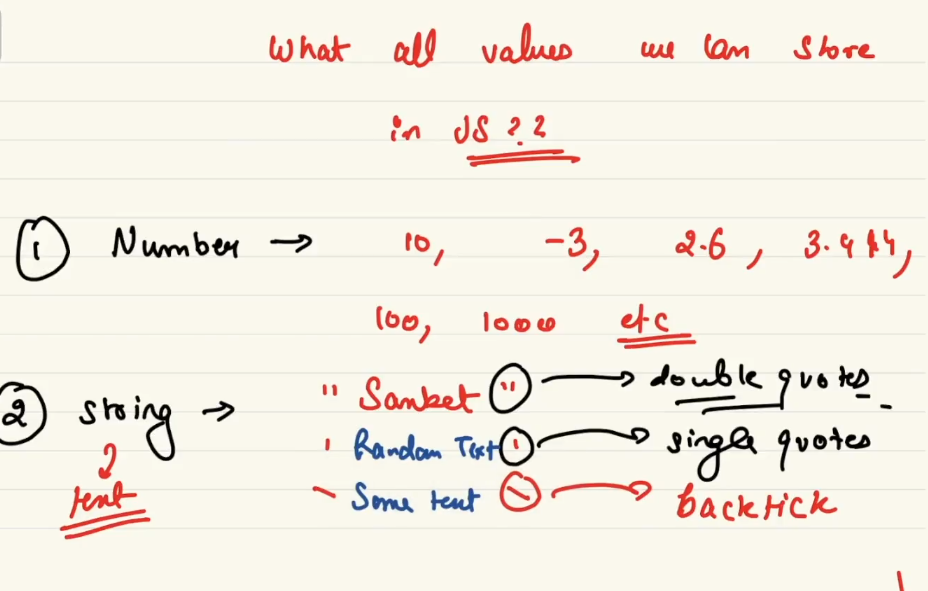 What all values we can store
in JS ??
① Number → 10, -3, 2.6, 3.414,
100, 10000 etc
② string → "Sanket" → double quotes
'Random Text' → single quotes
text `Some text` → backtick